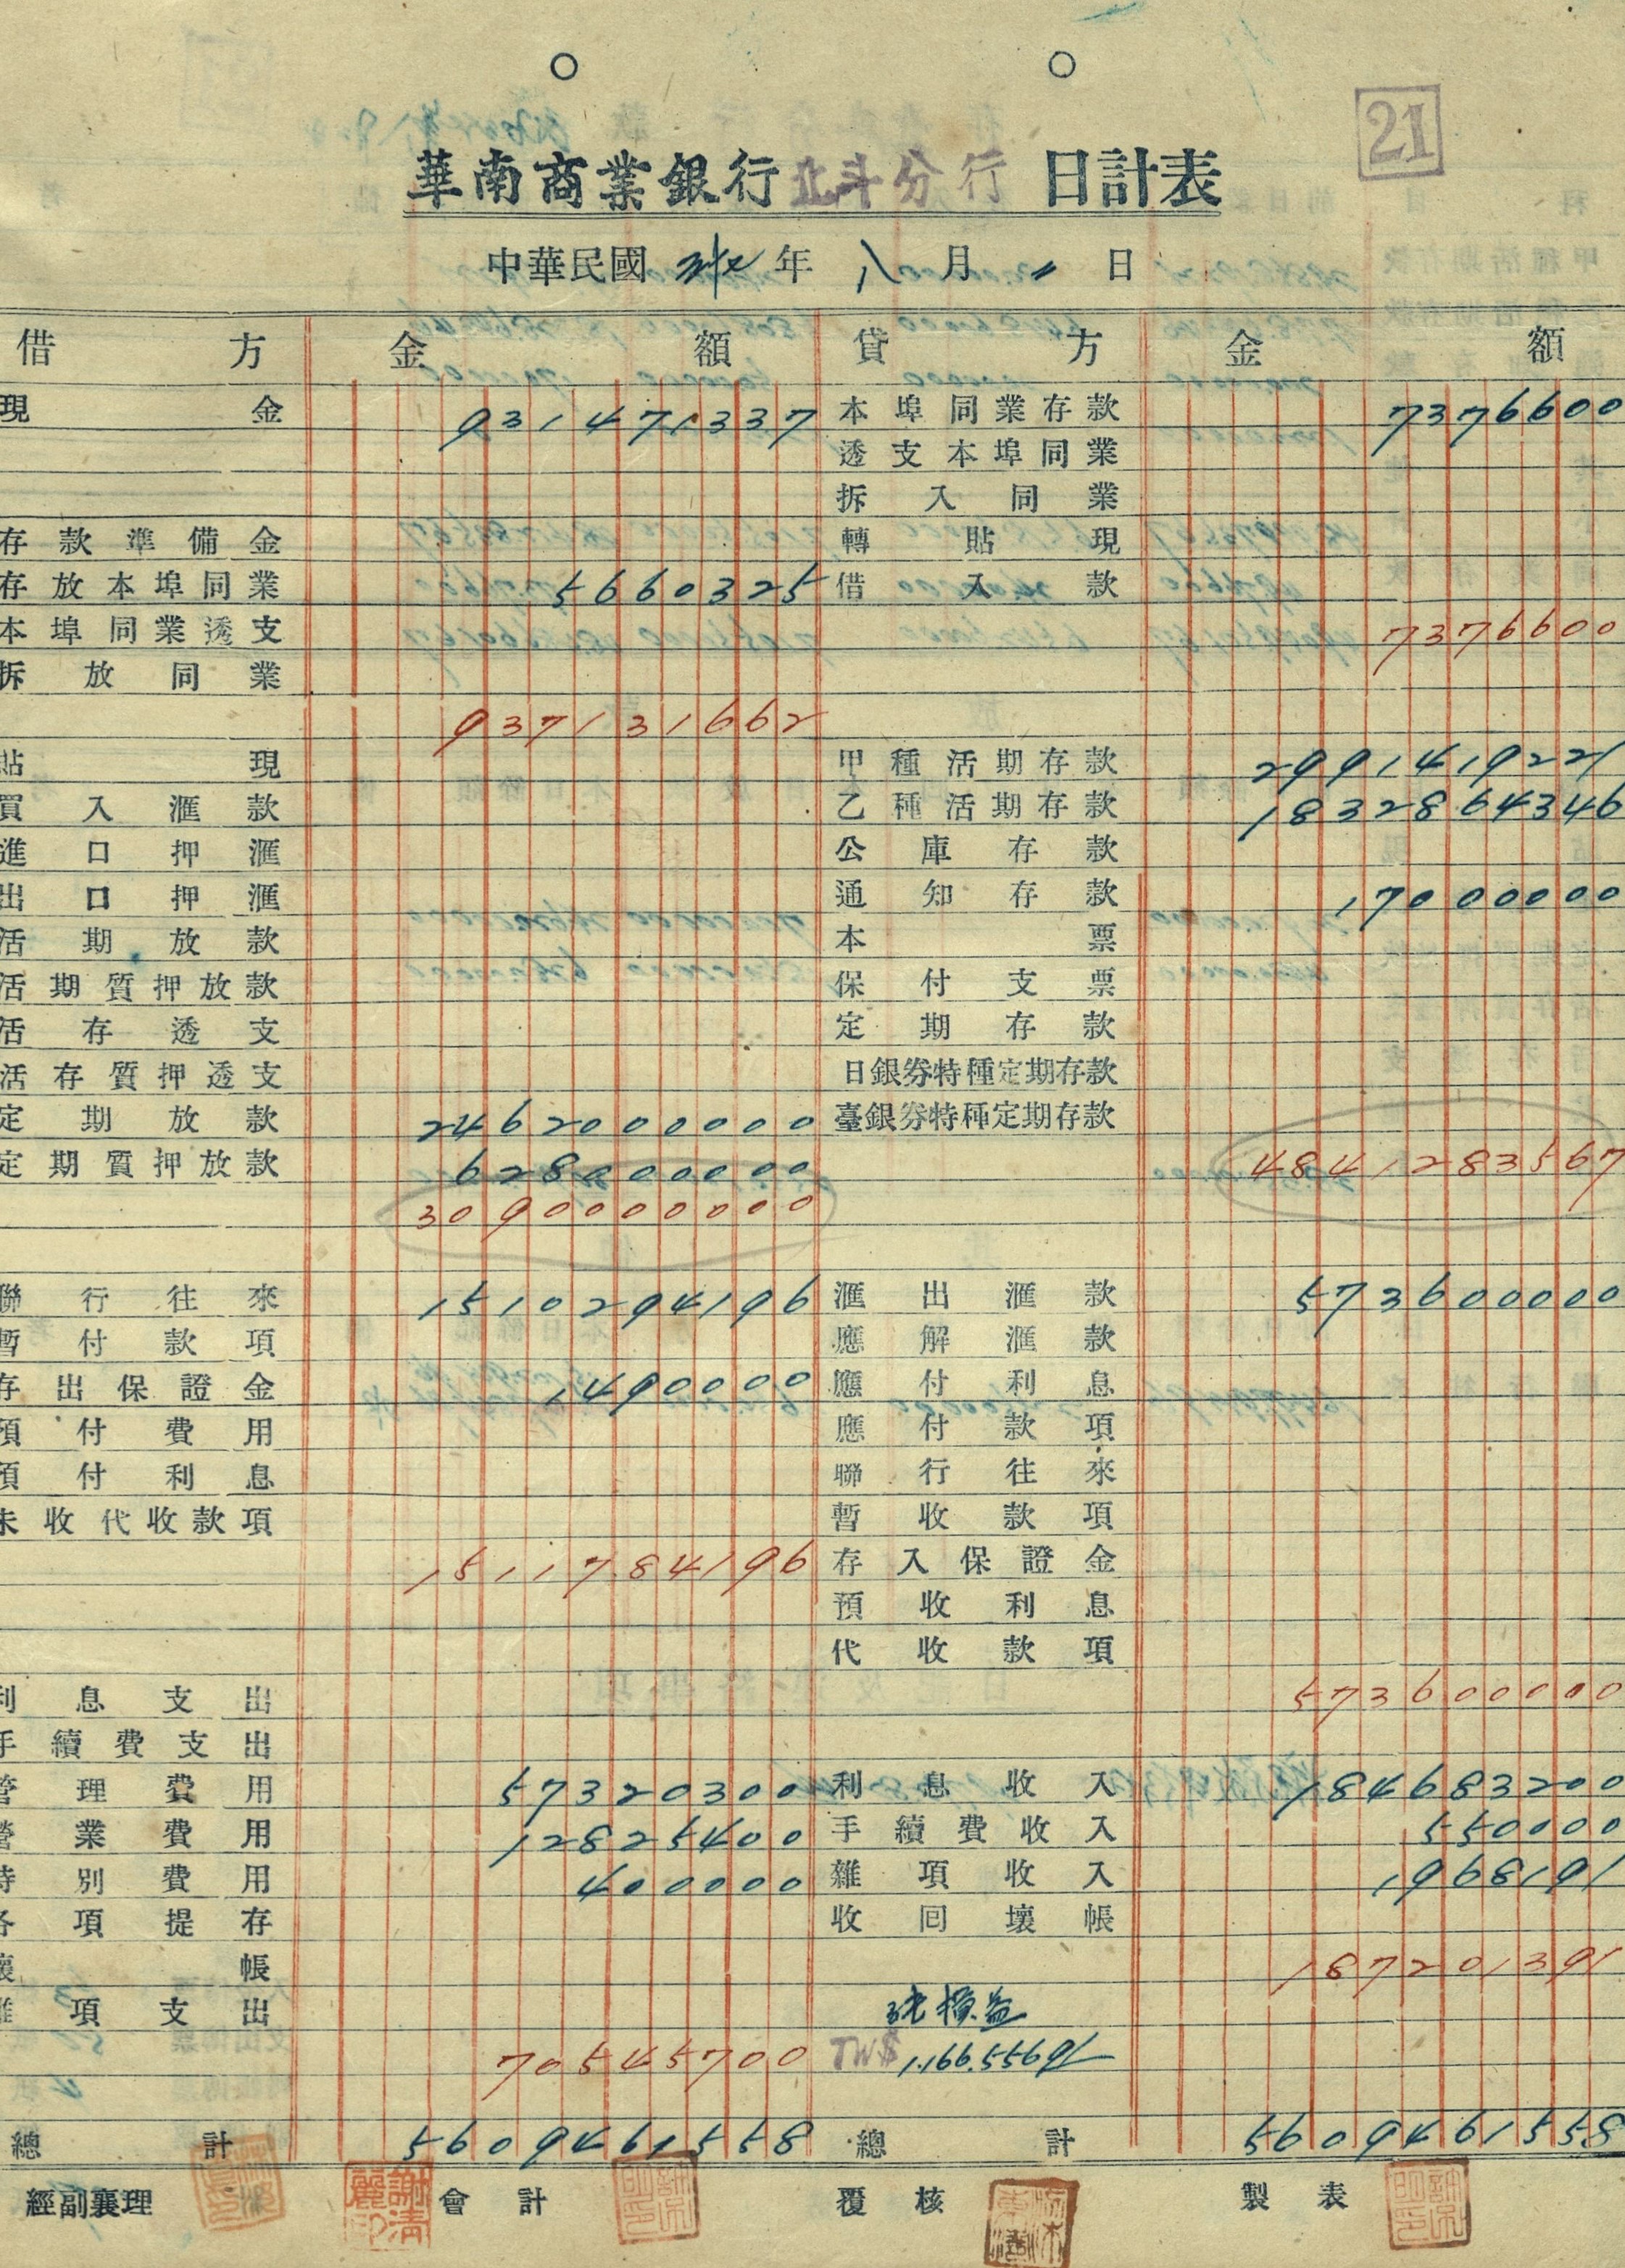 21
華南商業銀行北斗分行 日計表
中華民國 卅七 年 八 月 日
借方 金額 貸方 金額
現金 931471337 本埠同業存款 7376600
透支本埠同業
拆入同業
存款準備金 轉貼現
存放本埠同業 5660325 借入款
本埠同業透支 7376600
拆放同業
937131662
貼現 甲種活期存款 2991419221
買入滙款 乙種活期存款 1832864346
進口押滙 公庫存款
出口押滙 通知存款 17000000
活期放款 本票
活期質押放款 保付支票
活存透支 定期存款
活存質押透支 日銀券特種定期存款
定期放款 2462000000 臺銀券特種定期存款
定期質押放款 628000000 4841283567
3090000000
聯行往來 1510294196 滙出滙款 573600000
暫付款項 應解滙款
存出保證金 1490000 應付利息
預付費用 應付款項
預付利息 聯行往來
未收代收款項 暫收款項
1511784196 存入保證金
預收利息
代收款項
利息支出 573600000
手續費支出
管理費用 57320300 利息收入 184683200
營業費用 12825400 手續費收入 550000
特別費用 400000 雜項收入 1968191
各項提存 收回壞帳
壞帳 187201391
雜項支出 純損益
70545700 TW$ 1.166.556.91
總計 5609461558 總計 5609461558
經副襄理 會計 覆核 製表
謝清麗印